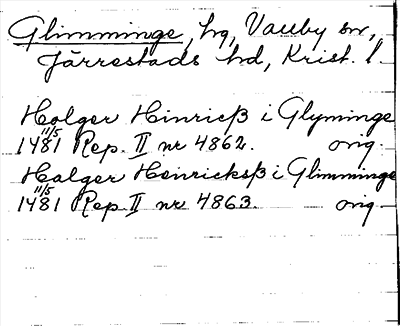 Glimminge, hg, Vallby sn,
Järrestads hd, Krist. l.
Holger Hinricß i Glyminge
11/5 1481 Rep. II nr 4862. orig.
Holger Henricksß i Glimminge
11/5 1481 Rep. II nr 4863. orig.